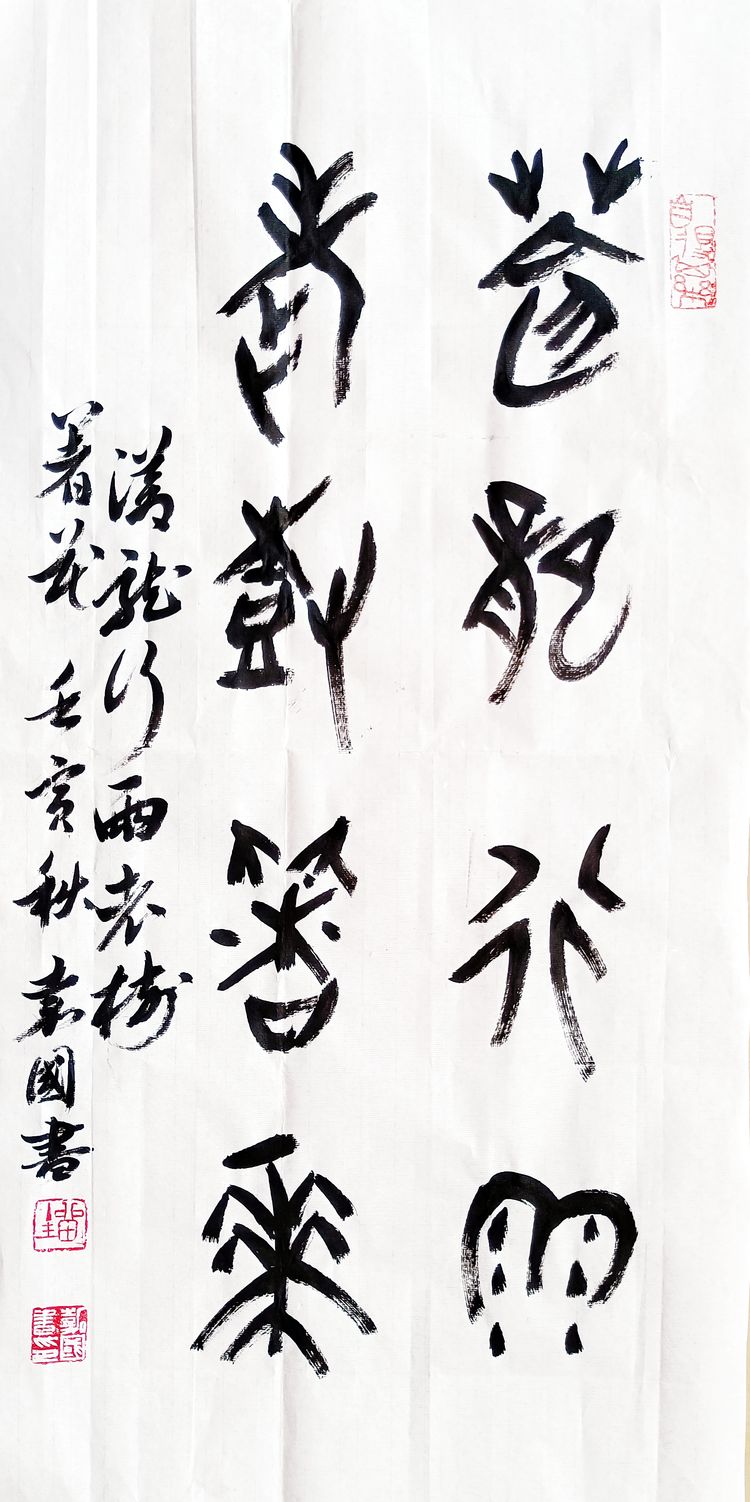 蒼龍行雨
老樹著華
龍行雨老樹
著花 壬寅秋 國書